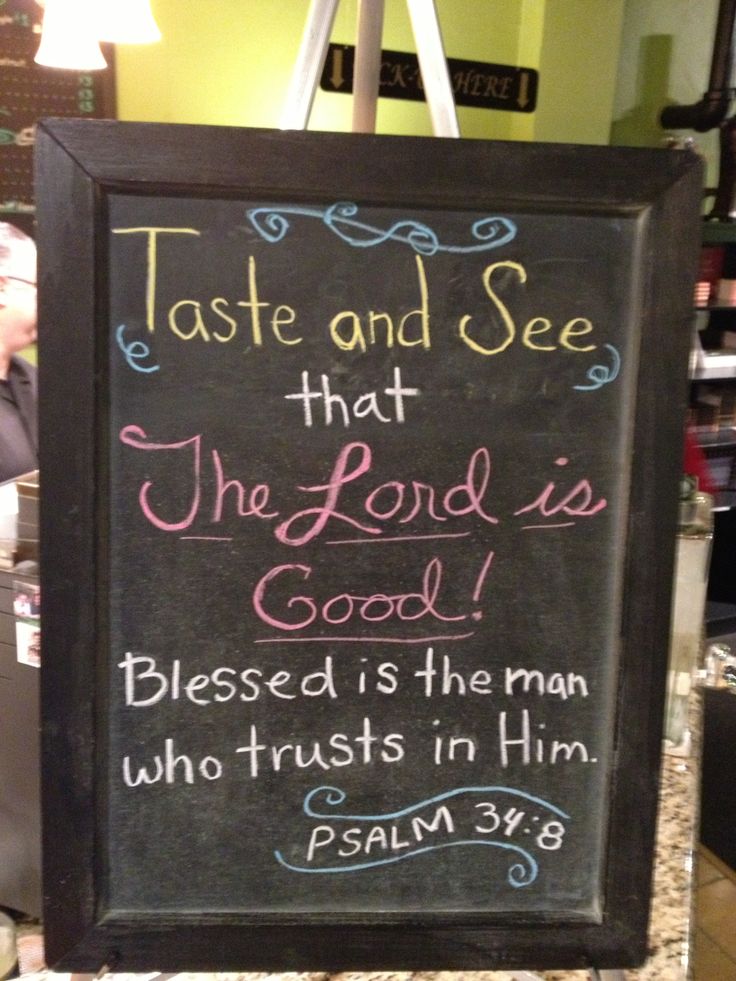 HERE
Taste and See
that
The Lord is
Good!
Blessed is the man
who trusts in Him.
PSALM 34:8